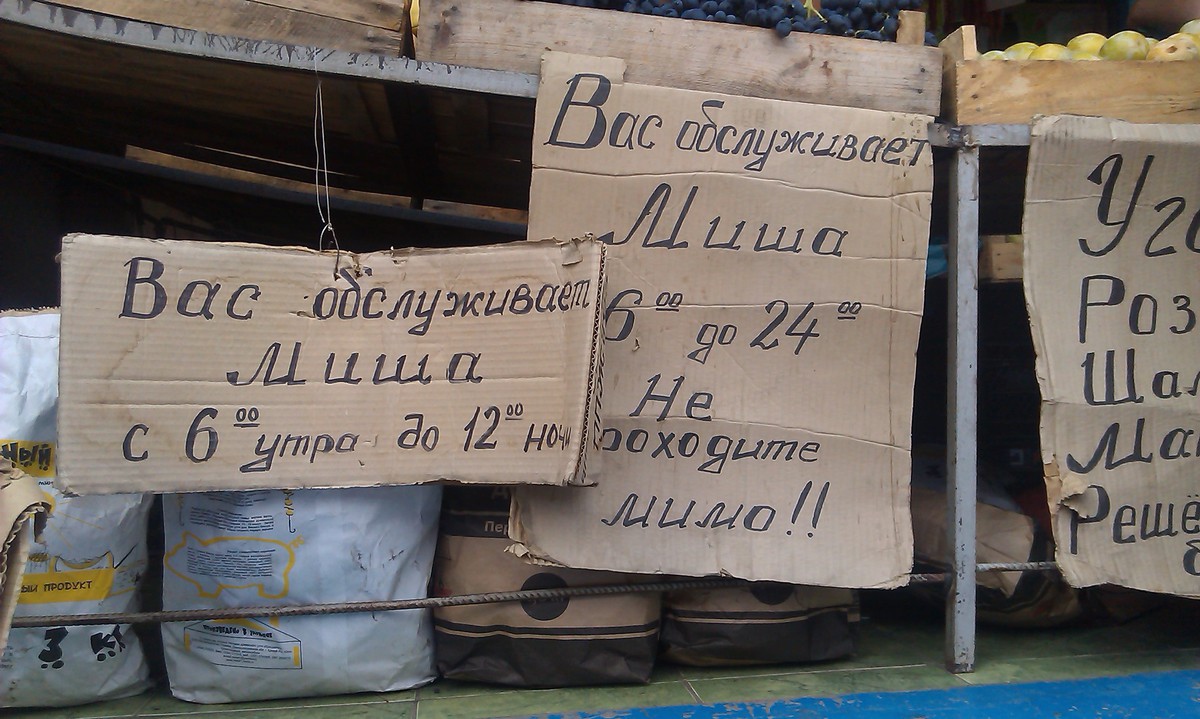 Вас обслуживает
Миша
с 6⁰⁰ утра до 12⁰⁰ ночи
Вас обслуживает
Миша
6⁰⁰ до 24⁰⁰
Не
роходите
мимо!!
Уго
Роз
Шам
Ман
Решё
б
ный
ый продукт
3 кг
Пер